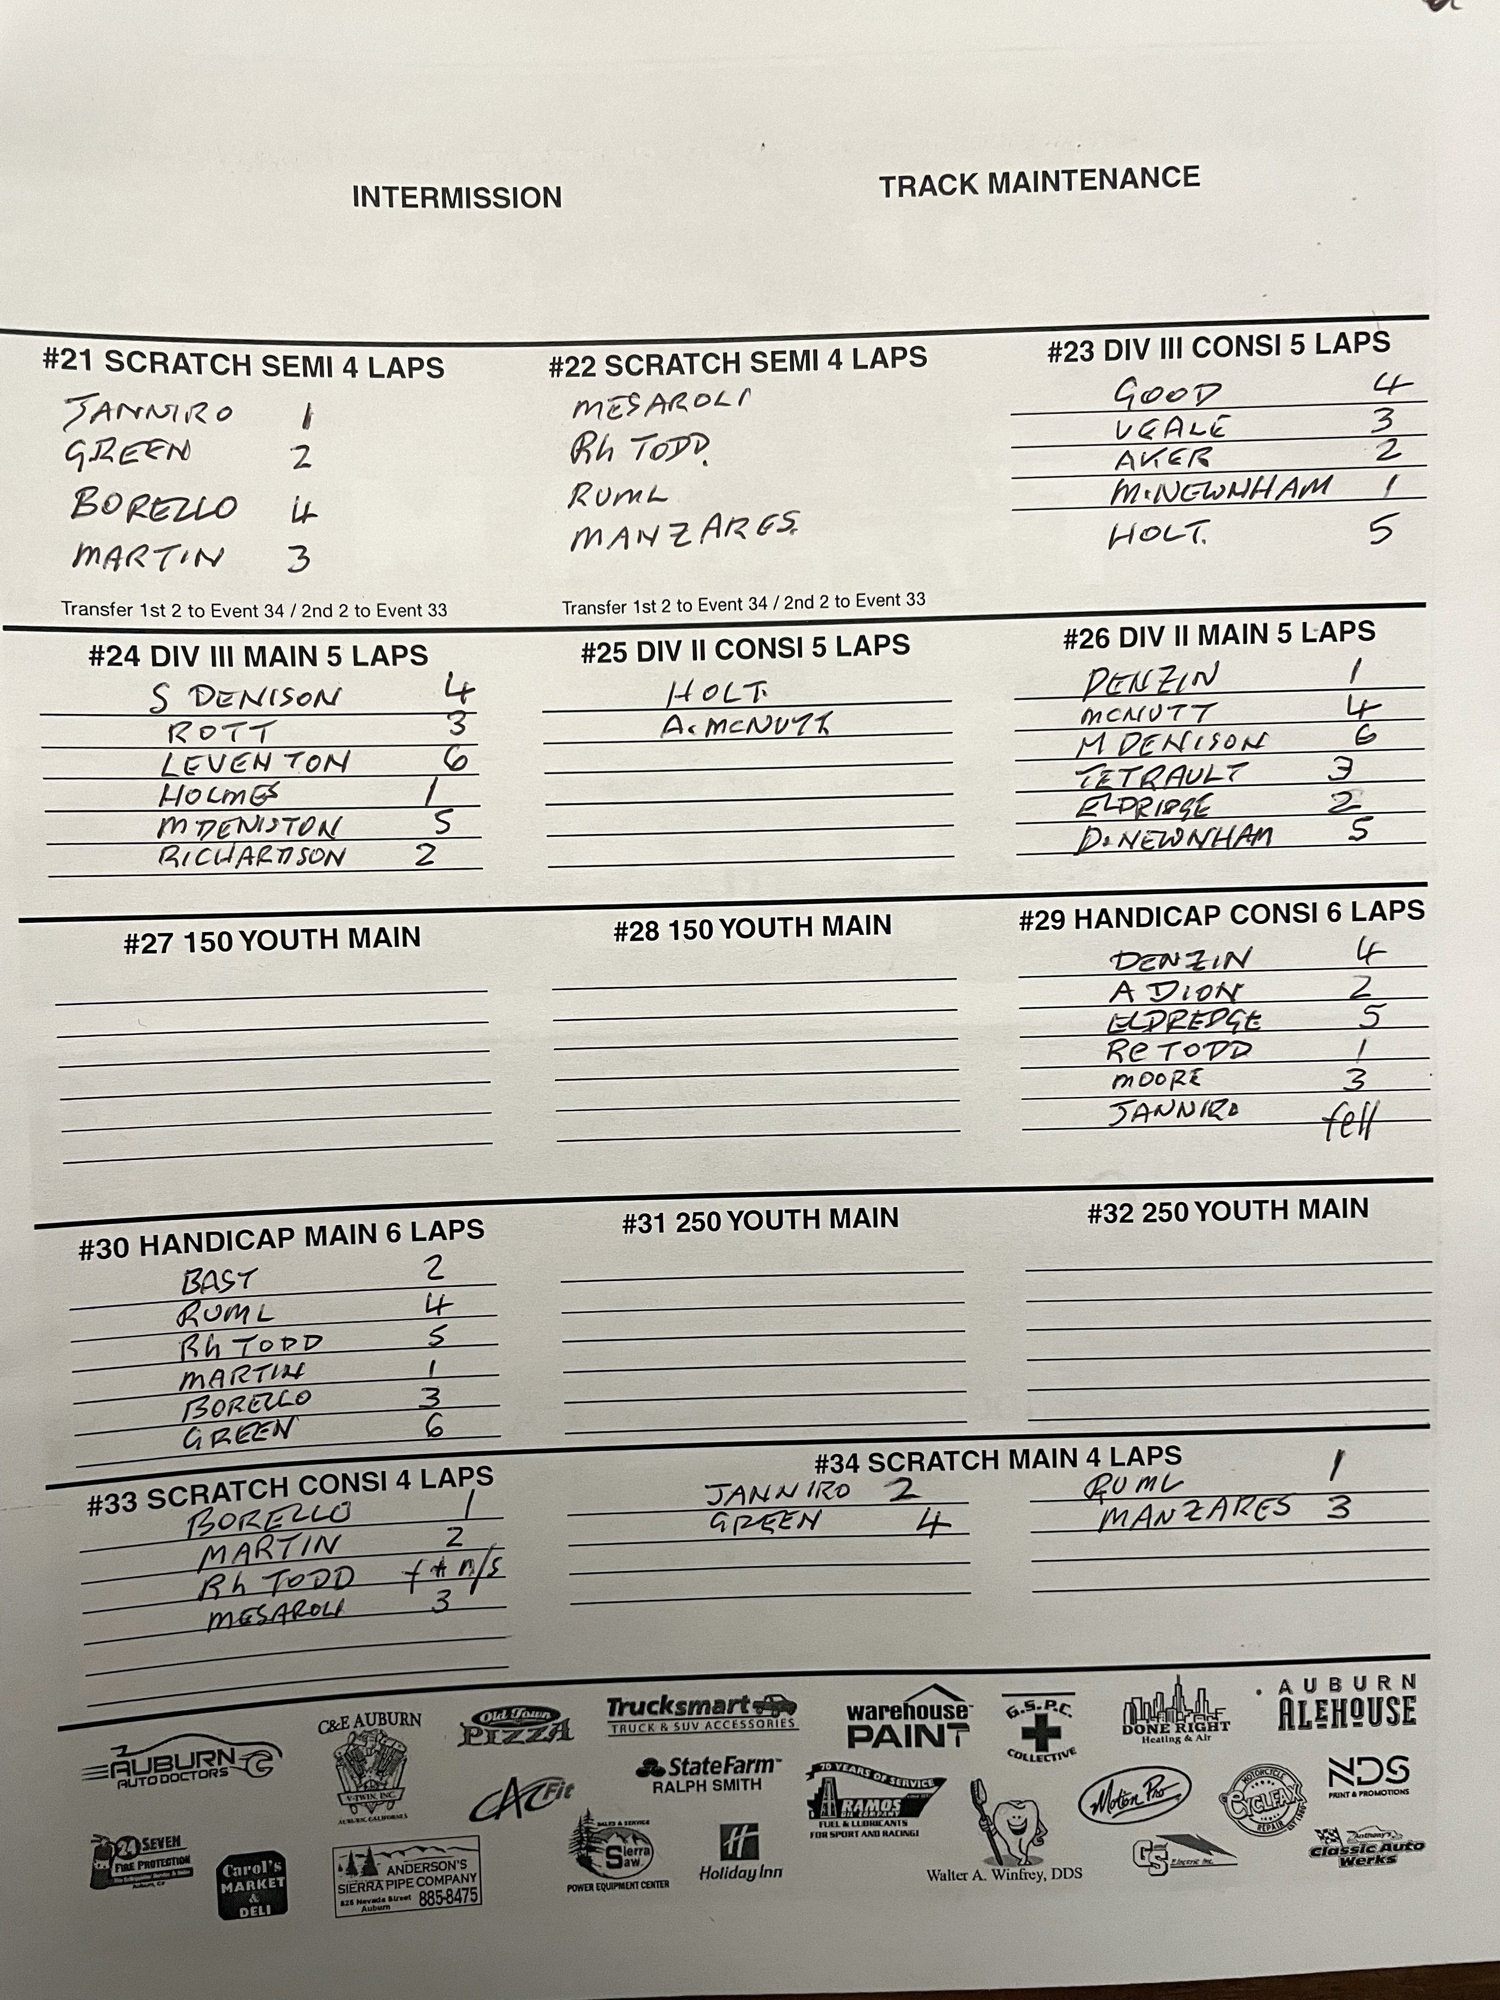 INTERMISSION
TRACK MAINTENANCE
#21 SCRATCH SEMI 4 LAPS
JANNIRO 1
GREEN 2
BORELLO 4
MARTIN 3
Transfer 1st 2 to Event 34 / 2nd 2 to Event 33
#22 SCRATCH SEMI 4 LAPS
MESAROLI
Rh TODD.
RUML
MANZARES.
Transfer 1st 2 to Event 34 / 2nd 2 to Event 33
#23 DIV III CONSI 5 LAPS
GOOD 4
VEALE 3
AKER 2
M.NEWNHAM 1
HOLT. 5
#24 DIV III MAIN 5 LAPS
S DENISON 4
ROTT 3
LEVENTON 6
HOLMES 1
M DENISTON 5
RICHARDSON 2
#25 DIV II CONSI 5 LAPS
HOLT.
A. MCNUTT
#26 DIV II MAIN 5 LAPS
DENZIN 1
MCNUTT 4
M DENISON 6
TETRAULT 3
ELDRIDGE 2
D.NEWNHAM 5
#27 150 YOUTH MAIN
#28 150 YOUTH MAIN
#29 HANDICAP CONSI 6 LAPS
DENZIN 4
A DION 2
ELDREDGE 5
Re TODD 1
MOORE 3
JANNIRO fell
#30 HANDICAP MAIN 6 LAPS
BAST 2
RUML 4
Rh TODD 5
MARTIN 1
BORELLO 3
GREEN 6
#31 250 YOUTH MAIN
#32 250 YOUTH MAIN
#33 SCRATCH CONSI 4 LAPS
BORELLO 1
MARTIN 2
Rh TODD n/s
MESAROLI 3
#34 SCRATCH MAIN 4 LAPS
JANNIRO 2
GREEN 4
RUML 1
MANZARES 3
AUBURN
AUTO DOCTORS
C&E AUBURN
V-TWIN, INC.
AUBURN, CALIFORNIA
Old Town
PIZZA
Trucksmart
TRUCK & SUV ACCESSORIES
warehouse
PAINT
G.S.P.C.
COLLECTIVE
DONE RIGHT
Heating & Air
AUBURN
ALEHOUSE
CAC Fit
StateFarm
RALPH SMITH
70 YEARS OF SERVICE
RAMOS
OIL COMPANY
FUEL & LUBRICANTS
FOR SPORT AND RACING!
Motion Pro
MOTORCYCLE
CYCLEFAX
REPAIR
NDS
PRINT & PROMOTIONS
24 SEVEN
FIRE PROTECTION
Carol's
MARKET
&
DELI
ANDERSON'S
SIERRA PIPE COMPANY
825 Nevada Street
Auburn
885-8475
SALES & SERVICE
Sierra
Saw
POWER EQUIPMENT CENTER
H
Holiday Inn
Walter A. Winfrey, DDS
GS Electric Inc.
Anthony's
Classic Auto
Werks